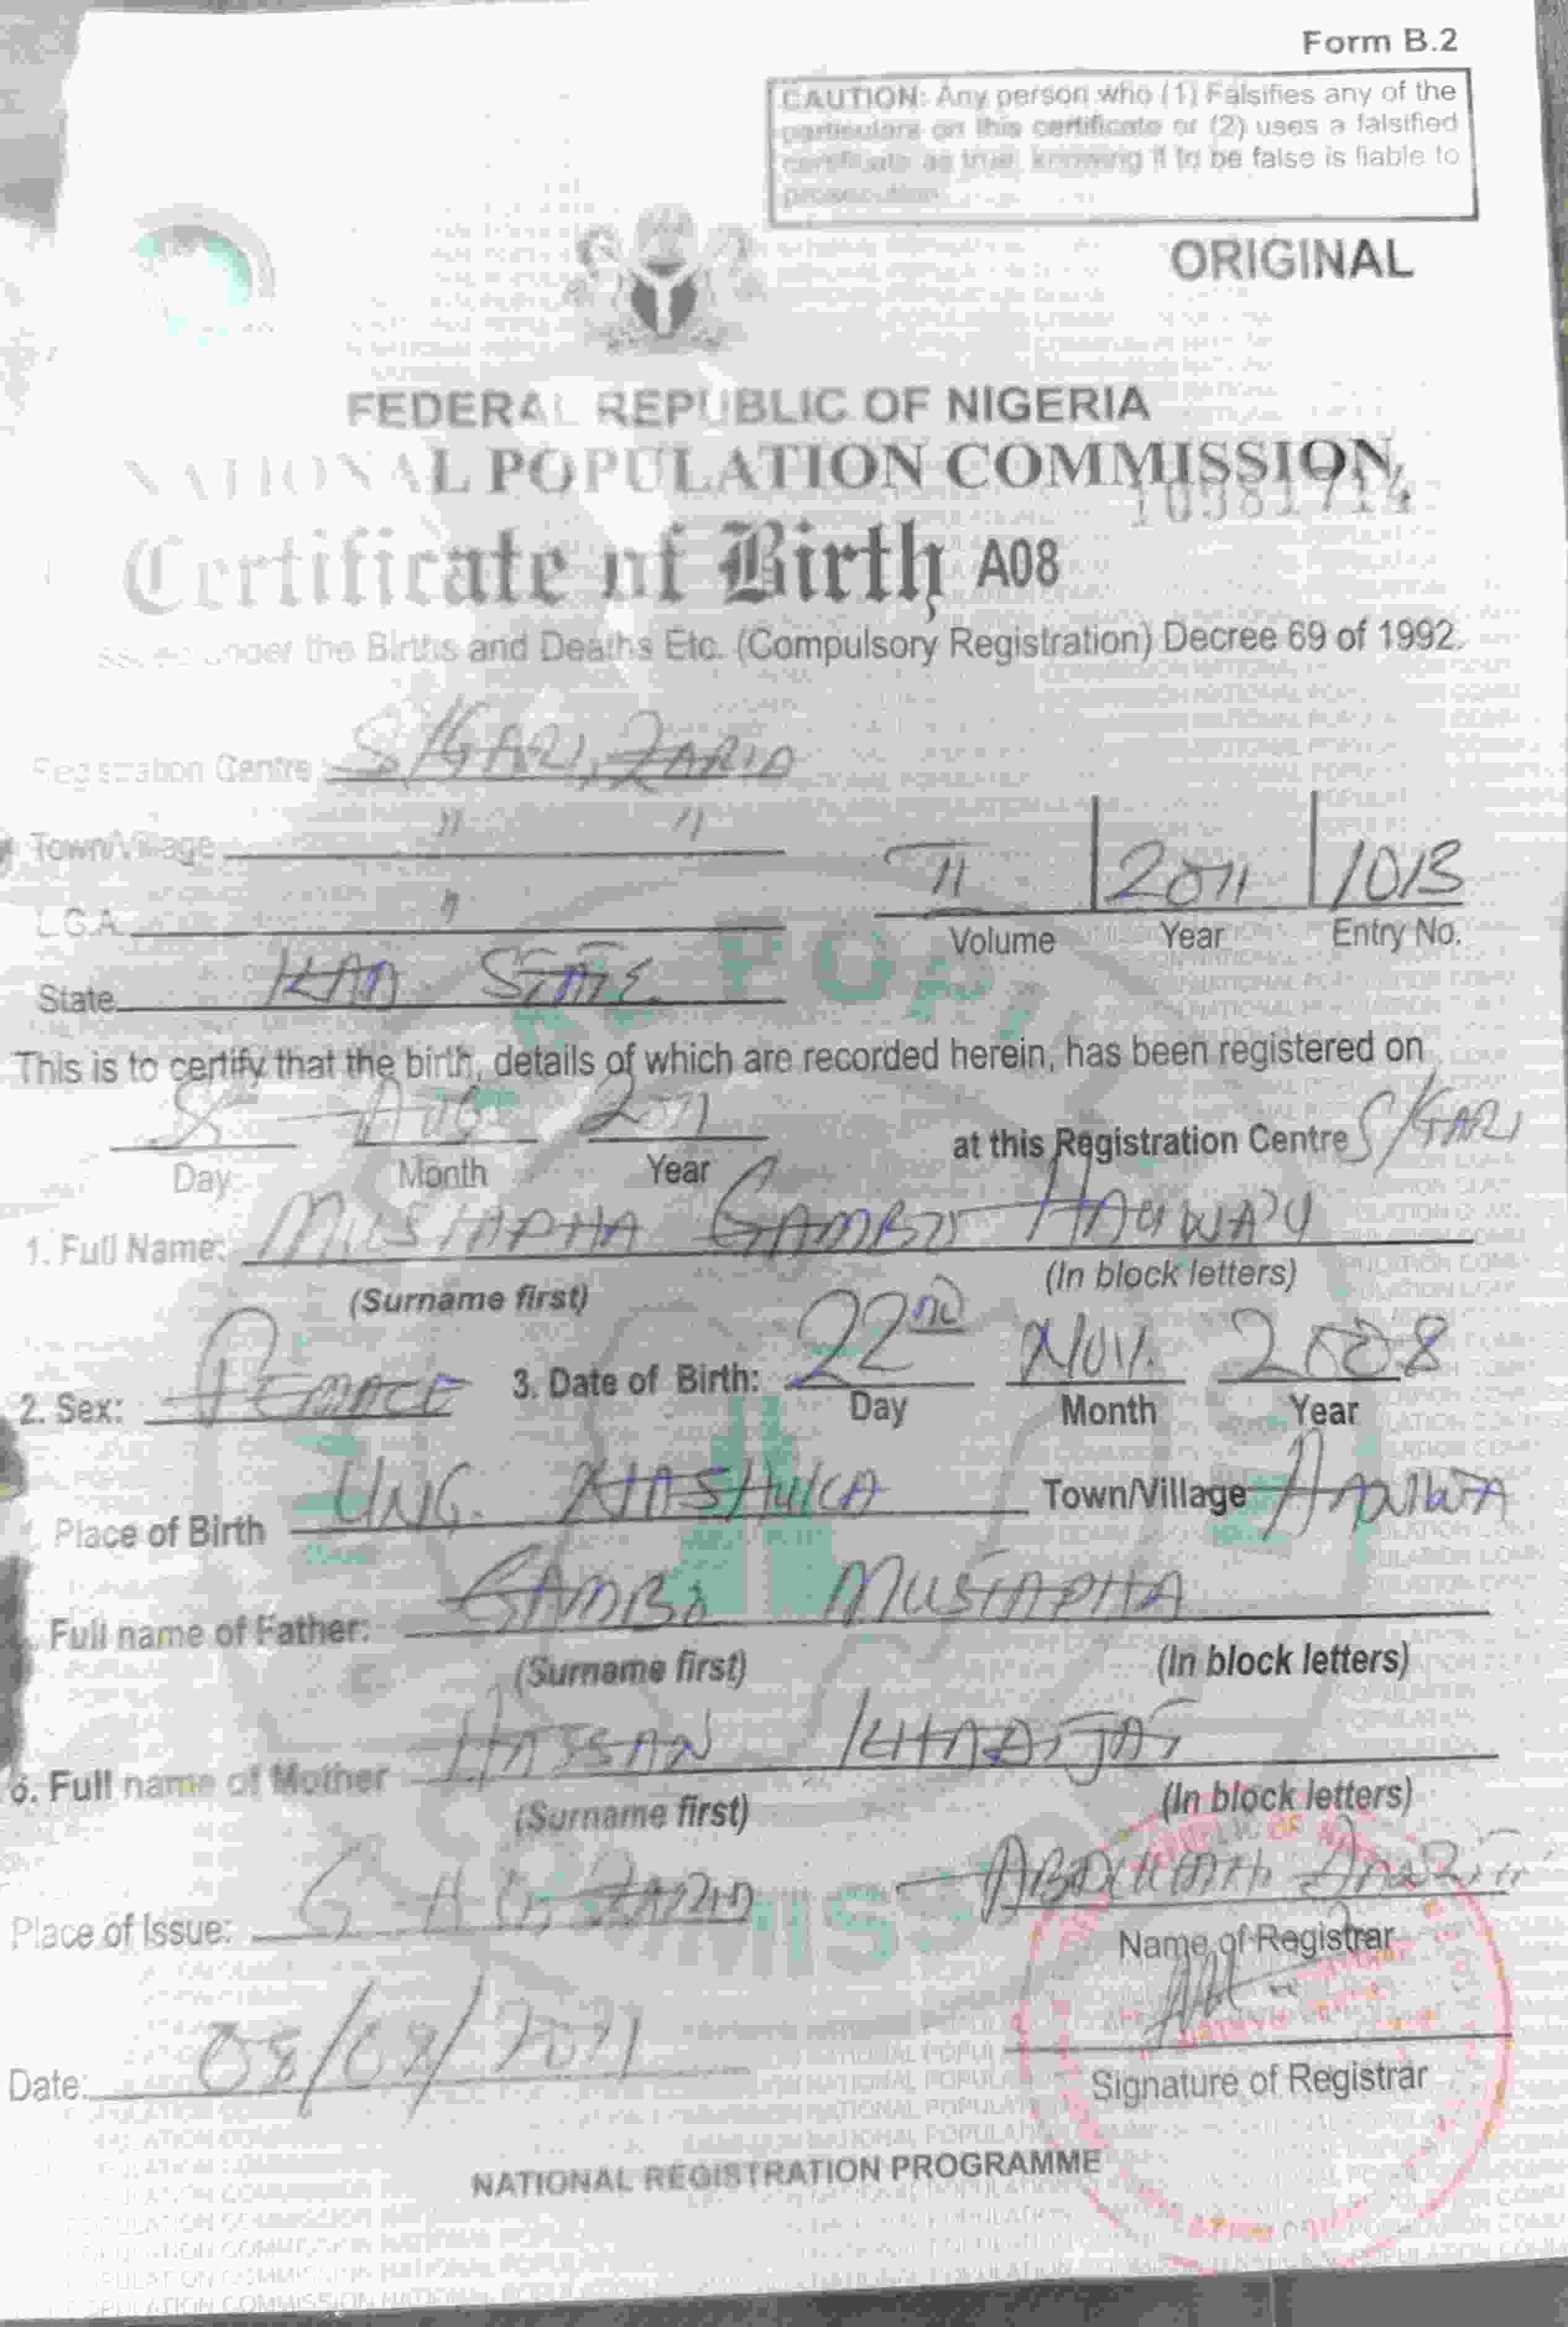 Form B.2
CAUTION: Any person who (1) Falsifies any of the
particulars on this certificate or (2) uses a falsified
certificate as true, knowing it to be false is liable to
prosecution
ORIGINAL
FEDERAL REPUBLIC OF NIGERIA
NATIONAL POPULATION COMMISSION
10381714
Certificate of Birth A08
Issued under the Births and Deaths Etc. (Compulsory Registration) Decree 69 of 1992.
Registration Centre S/GARI, ZARIA
Town/Village " "
L.G.A. "
II 2011 1013
Volume Year Entry No.
State KAD STATE
This is to certify that the birth, details of which are recorded herein, has been registered on
8 AUG 2011 at this Registration Centre S/GARI
Day Month Year
1. Full Name: MUSTAPHA GAMBO
(Surname first) (In block letters)
2. Sex: FEMALE 3. Date of Birth: 22ND NOV. 2008
Day Month Year
Place of Birth UNG. Town/Village
Full name of Father: GAMBO MUSTAPHA
(Surname first) (In block letters)
6. Full name of Mother HASSAN KHADIJAT
(Surname first) (In block letters)
Place of Issue: ZARIA
Name of Registrar
Date: 08/08/2011
Signature of Registrar
NATIONAL REGISTRATION PROGRAMME